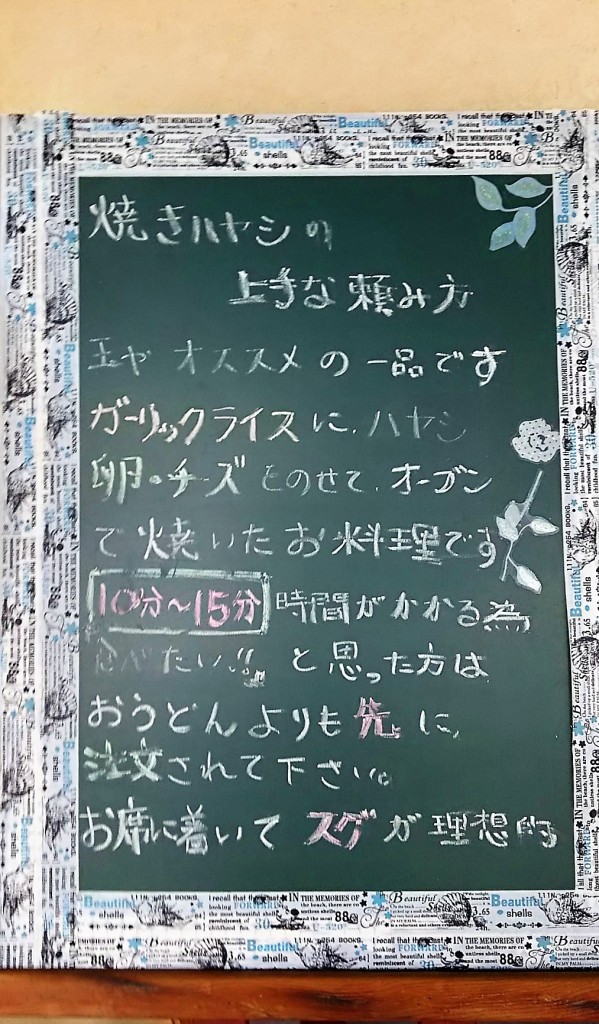 焼きハヤシの
上手な頼み方
玉や オススメの一品です
ガーリックライスに、ハヤシ
卵・チーズをのせて、オーブン
で焼いたお料理です
10分〜15分 時間がかかる為
食べたい!! と思った方は
おうどんよりも先に、
注文されて下さい。
お席に着いてスグが理想的